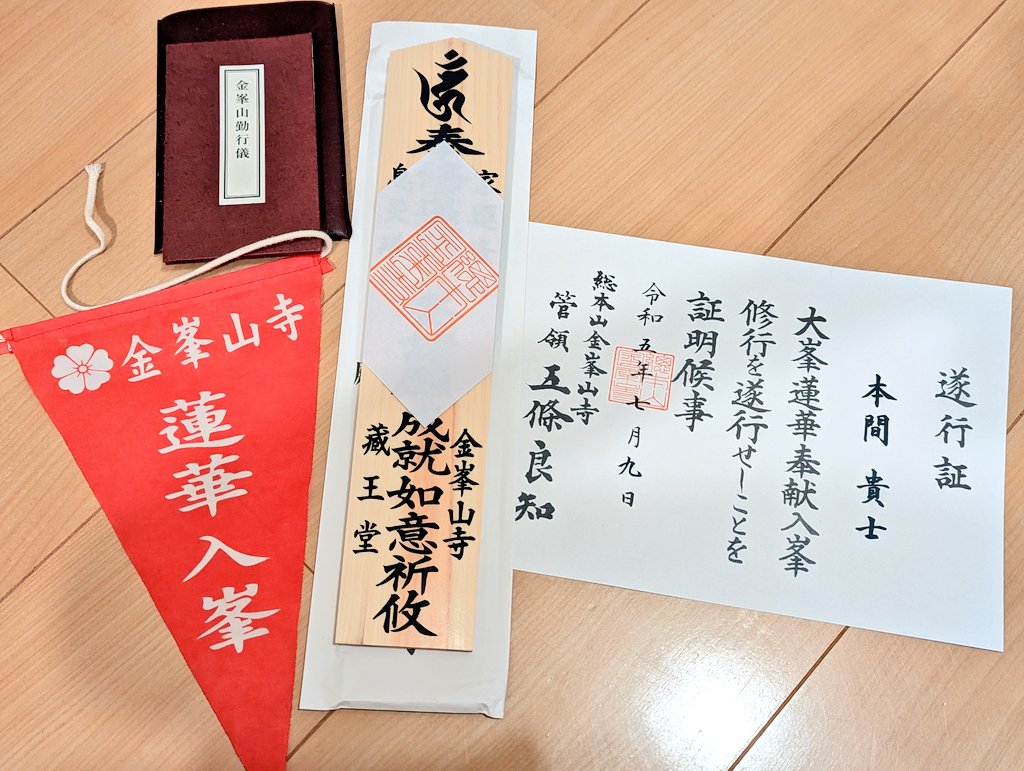 金峯山勤行儀
金峯山寺
蓮華入峯
奉
家
金峯山寺
成就如意祈攸
藏王堂
遂行証
本間 貴士
大峯蓮華奉献入峯
修行を遂行せしことを
証明候事
令和五年七月九日
総本山金峯山寺
管領 五條良知